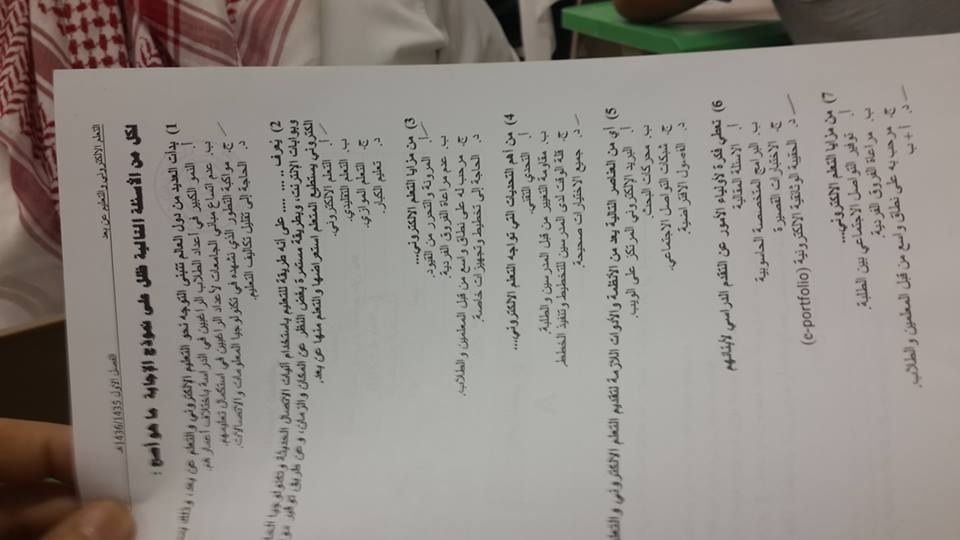 التعلم الالكتروني والتعليم عن بعد
الفصل الاول 1436/1435هـ
لكل من الأسئلة التالية ظلل على نموذج الإجابة ما هو أصح :
1) بدأت العديد من دول العالم تتبنى التوجه نحو التعليم الالكتروني والتعلم عن بعد، وذلك
أ. النمو الكبير في أعداد الطلاب الراغبين في الدراسة باختلاف أعمارهم.
ب. عدم اتساع مباني الجامعات لأعداد الراغبين في استكمال تعليمهم.
ج. مواكبة التطور الذي نشهده في تكنولوجيا المعلومات والاتصالات.
د. الحاجة إلى تقليل تكاليف التعليم.
2) يعرف ........ على أنه طريقة للتعليم باستخدام آليات الاتصال الحديثة وتكنولوجيا
وبوابات الانترنت وبطريقة مستمرة بغض النظر عن المكان والزمان، وعن طريق توفير
الكتروني يستطيع المتعلم استعراضها والتعلم منها عن بعد.
أ. التعلم الالكتروني.
ب. التعلم التقليدي.
ج. التعلم الموازي.
د. تعليم الكبار.
3) من مزايا التعلم الالكتروني...
أ. المرونة والتحرر من القيود.
ب. عدم مراعاة الفروق الفردية.
ج. مرحب به على نطاق واسع من قبل المعلمين والطلاب.
د. الحاجة إلى تخطيط وتجهيزات خاصة.
4) من أهم التحديات التي تواجه التعلم الالكتروني...
أ. التحدي التقني.
ب. مقاومة التغيير من قبل المدرسين والطلبة.
ج. قلة الوقت لدى المدرسين للتخطيط وتنفيذ الخطط
د. جميع الاختيارات صحيحة.
5) أي من العناصر التالية يعد من الأنظمة والأدوات اللازمة لتقديم التعلم الالكتروني والتعليم
أ. البريد الالكتروني المرتكز على الويب.
ب. محركات البحث.
ج. شبكات التواصل الاجتماعي.
د. الفصول الافتراضية.
6) تعطي فكرة لأولياء الأمور عن التقدم الدراسي لأبنائهم
أ. الأسئلة المقالية
ب. البرامج المتخصصة الحاسوبية
ج. الاختبارات القصيرة
د. الحقيبة الوثائقية الالكترونية (e-portfolio)
7) من مزايا التعلم الالكتروني...
أ. توفير التواصل الاجتماعي بين الطلبة.
ب. مراعاة الفروق الفردية
ج. مرحب به على نطاق واسع من قبل المعلمين والطلاب.
د. أ + ب